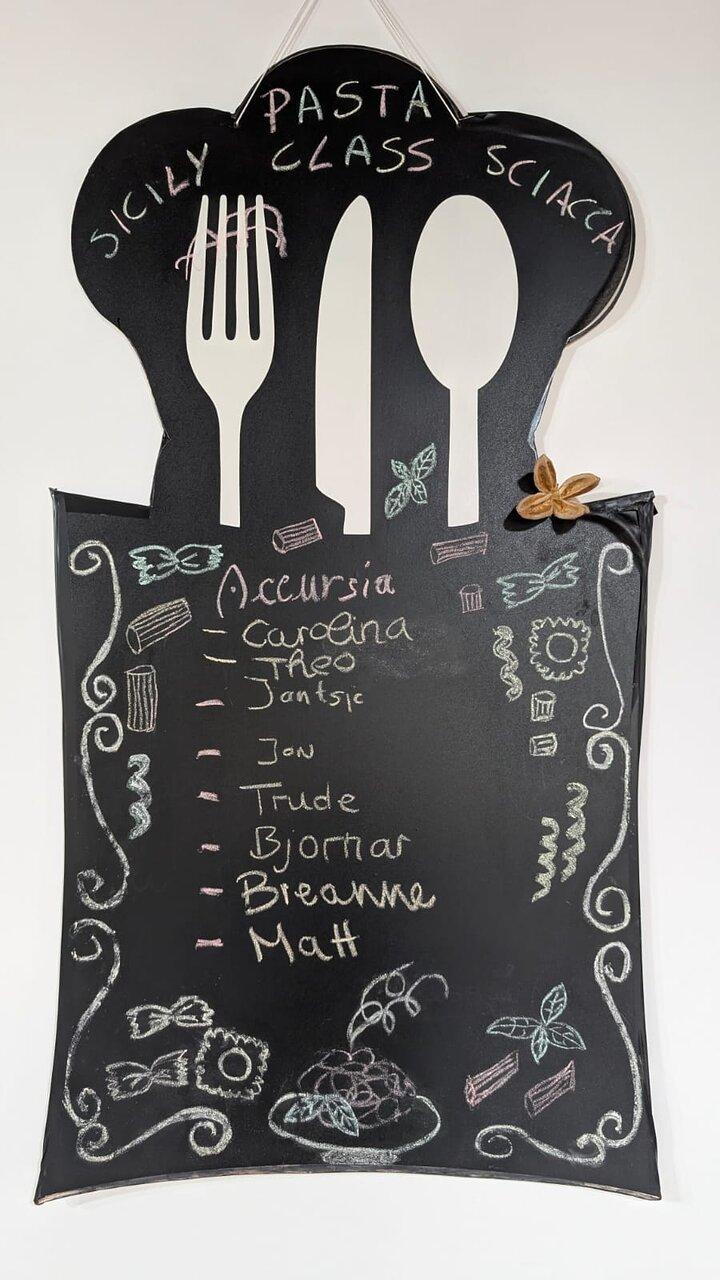 PASTA
SICILY CLASS SCIACCA
Accursia
- Carolina
- Theo
- Jantsje
- Jon
- Trude
- Bjornar
- Breanne
- Matt